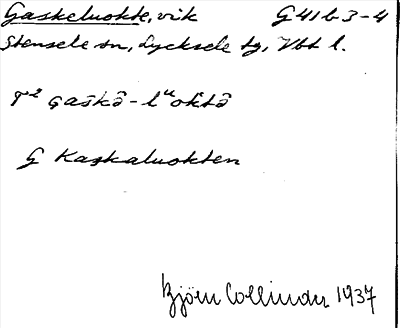 Gaskeluokte, vik G 41 b 3-4
Stensele sn, Lycksele tg, Vbt l.
gaskō-luoktō
G Kaskaluokten
Björn Collinder 1937